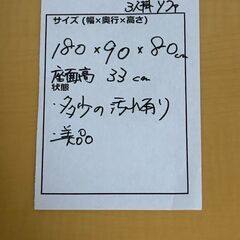 3人掛ソファ
サイズ（幅×奥行×高さ）
180×90×80cm
座面高 33cm
状態
・多少の汚れ有り
・美品